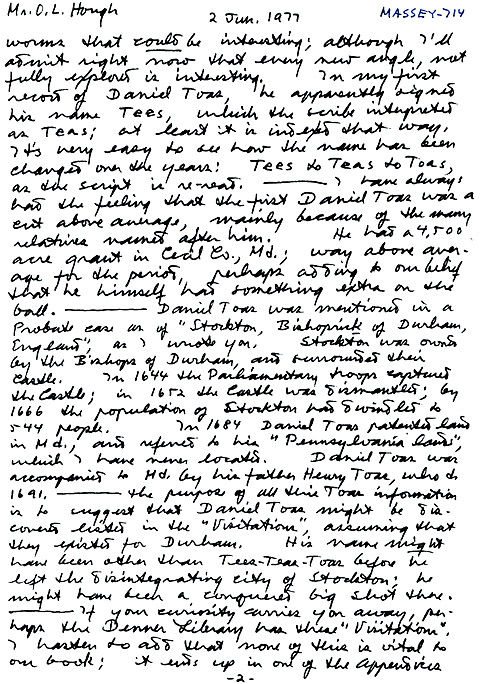 Mr. O. L. Hough 2 Jun. 1977 MASSEY-714
worms that could be interesting; although I'll
admit right now that every new angle, not
fully explored is interesting. In my first
record of Daniel Toas, he apparently signed
his name Tees, which the scribe interpreted
as Teas; at least it is indexed that way.
It's very easy to see how the name has been
changed over the years: Tees to Teas to Toas,
as the script is re-read. ——— I have always
had the feeling that the first Daniel Toas was a
cut above average, mainly because of the many
relatives named after him. He had a 4,500
acre grant in Cecil Co., Md.; way above aver-
age for the period, perhaps adding to our belief
that he himself had something extra on the
ball. ——— Daniel Toas was mentioned in a
Probate case as of "Stockton, Bishoprick of Durham,
England", as I wrote you. Stockton was owned
by the Bishops of Durham, and surrounded their
Castle. In 1644 the Parliamentary troops captured
the Castle; in 1652 the Castle was dismantled; by
1666 the population of Stockton had dwindled to
544 people. In 1684 Daniel Toas patented land
in Md., and referred to his "Pennsylvania land",
which I have never located. Daniel Toas was
accompanied to Md. by his father Henry Toas, who d.
1691. ——— The purpose of all this Toas information
is to suggest that Daniel Toas might be dis-
covered listed in the "Visitation", assuming that
they existed for Durham. His name might
have been other than Tees-Teas-Toas before he
left the disintegrating city of Stockton; he
might have been a conquered big shot there.
——— If your curiosity carries you away, per-
haps the Denver Library has these "Visitation".
I hasten to add that none of this is vital to
our book; it ends up in one of the Appendices
-2-